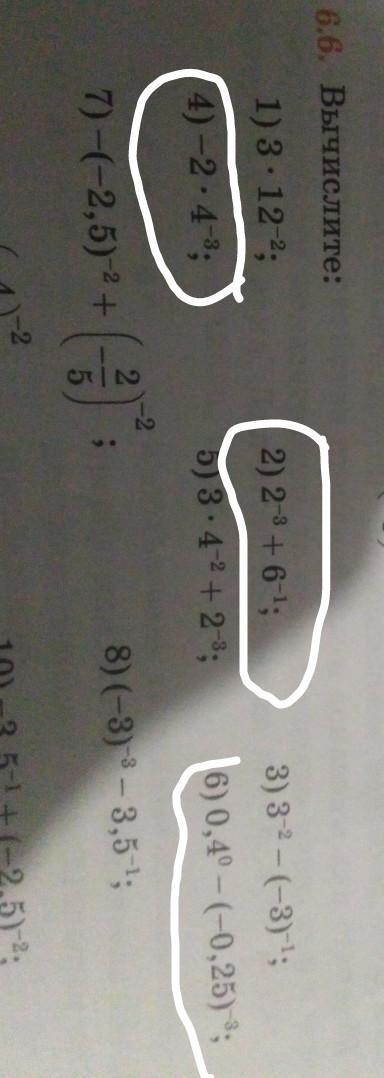 6.6. Вычислите:
1) 3 · 12⁻²; 2) 2⁻³ + 6⁻¹; 3) 3⁻² − (−3)⁻¹;
4) −2 · 4⁻³; 5) 3 · 4⁻² + 2⁻³; 6) 0,4⁰ − (−0,25)⁻³;
7) −(−2,5)⁻² + (−2/5)⁻²; 8) (−3)⁻³ − 3,5⁻¹;
10) −3,5⁻¹ + (−2,5)⁻²;